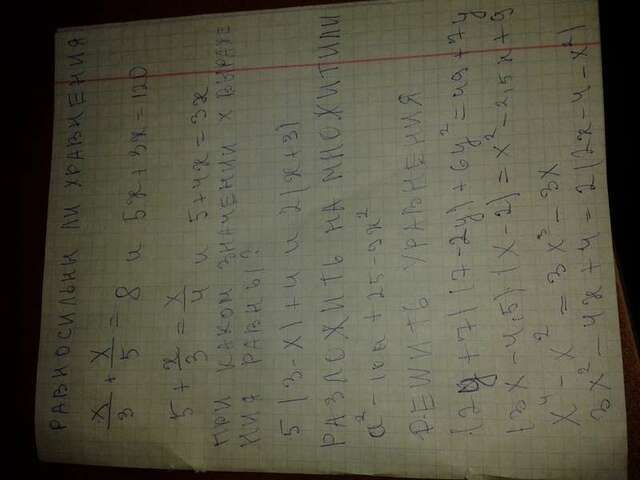 РАВНОСИЛЬНЫ ЛИ УРАВНЕНИЯ
x/3 + x/5 = 8 и 5x + 3x = 120
5 + x/3 = x/4 и 5 + 4x = 3x
ПРИ КАКОМ ЗНАЧЕНИИ X ВЫРАЖЕ
НИЯ РАВНЫ?
5(3-x)+4 и 2(x+3)
РАЗЛОЖИТЬ НА МНОЖИТИЛИ
a² - 10a + 25 - 9x²
РЕШИТЬ УРАВНЕНИЯ
(2y + 7)(7 - 2y) + 6y² = 49 + 7y
(3x - 4,5)(x - 2) = x² - 2,5x + 9
x⁴ - x² = 3x³ - 3x
3x² - 4x + 4 = 2(2x - 4 - x²)